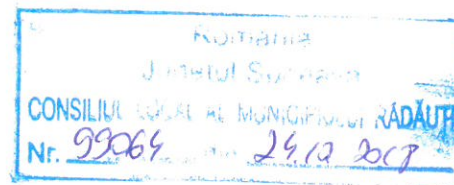 România
Județul Suceava
CONSILIUL LOCAL AL MUNICIPIULUI RĂDĂUȚI
Nr. 99064 din 24.12 2018